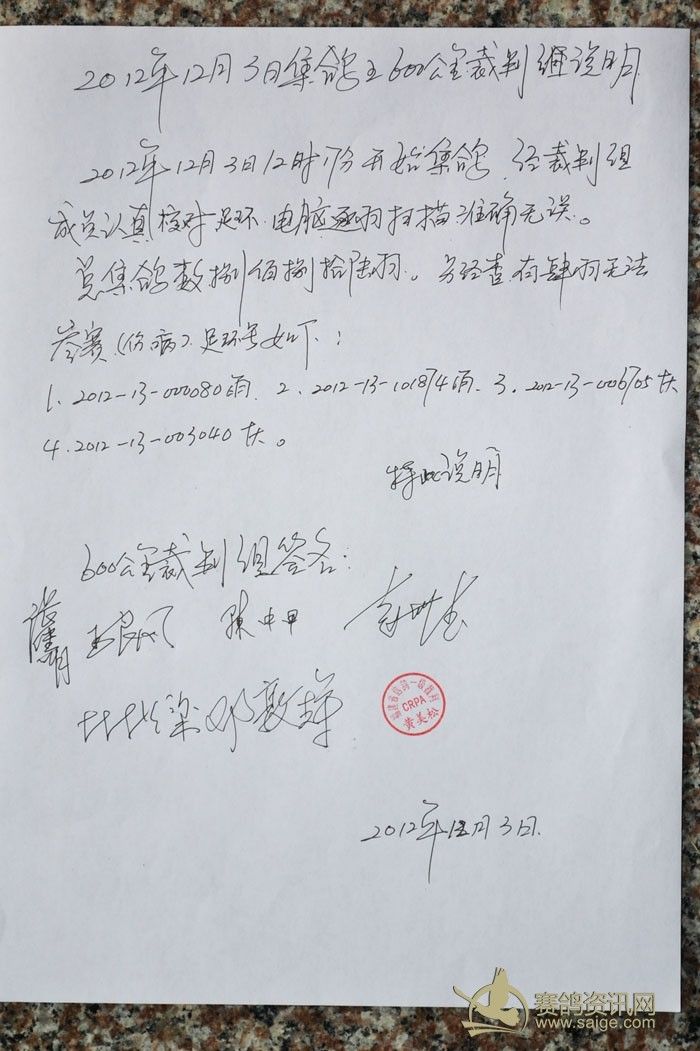 2012年12月3日集鸽王600公里裁判组说明
2012年12月3日12时17分开始集鸽,经裁判组
成员认真核对足环.电脑逐羽扫描准确无误。
总集鸽数捌佰捌拾陆羽。另经查有肆羽无法
参赛(伤病).足环号如下:
1、2012-13-000080雨. 2、2012-13-101874雨. 3、2012-13-006705灰
4.2012-13-003040灰。
特此说明
600公里裁判组签名:
陈中甲
CRPA
黄美松
2012年12月3日.
赛鸽资讯网
www.saige.com